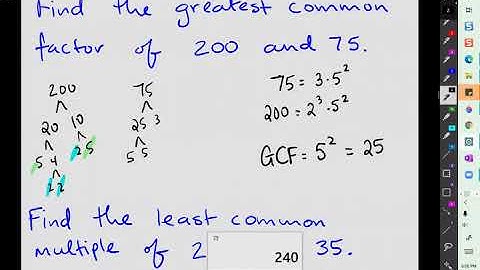 Find the greatest common
factor of 200 and 75.
200
20 10
5 4 2 5
2 2
75
25 3
5 5
75 = 3·5²
200 = 2³·5²
GCF = 5² = 25
Find the least common
multiple of 2 35.
240